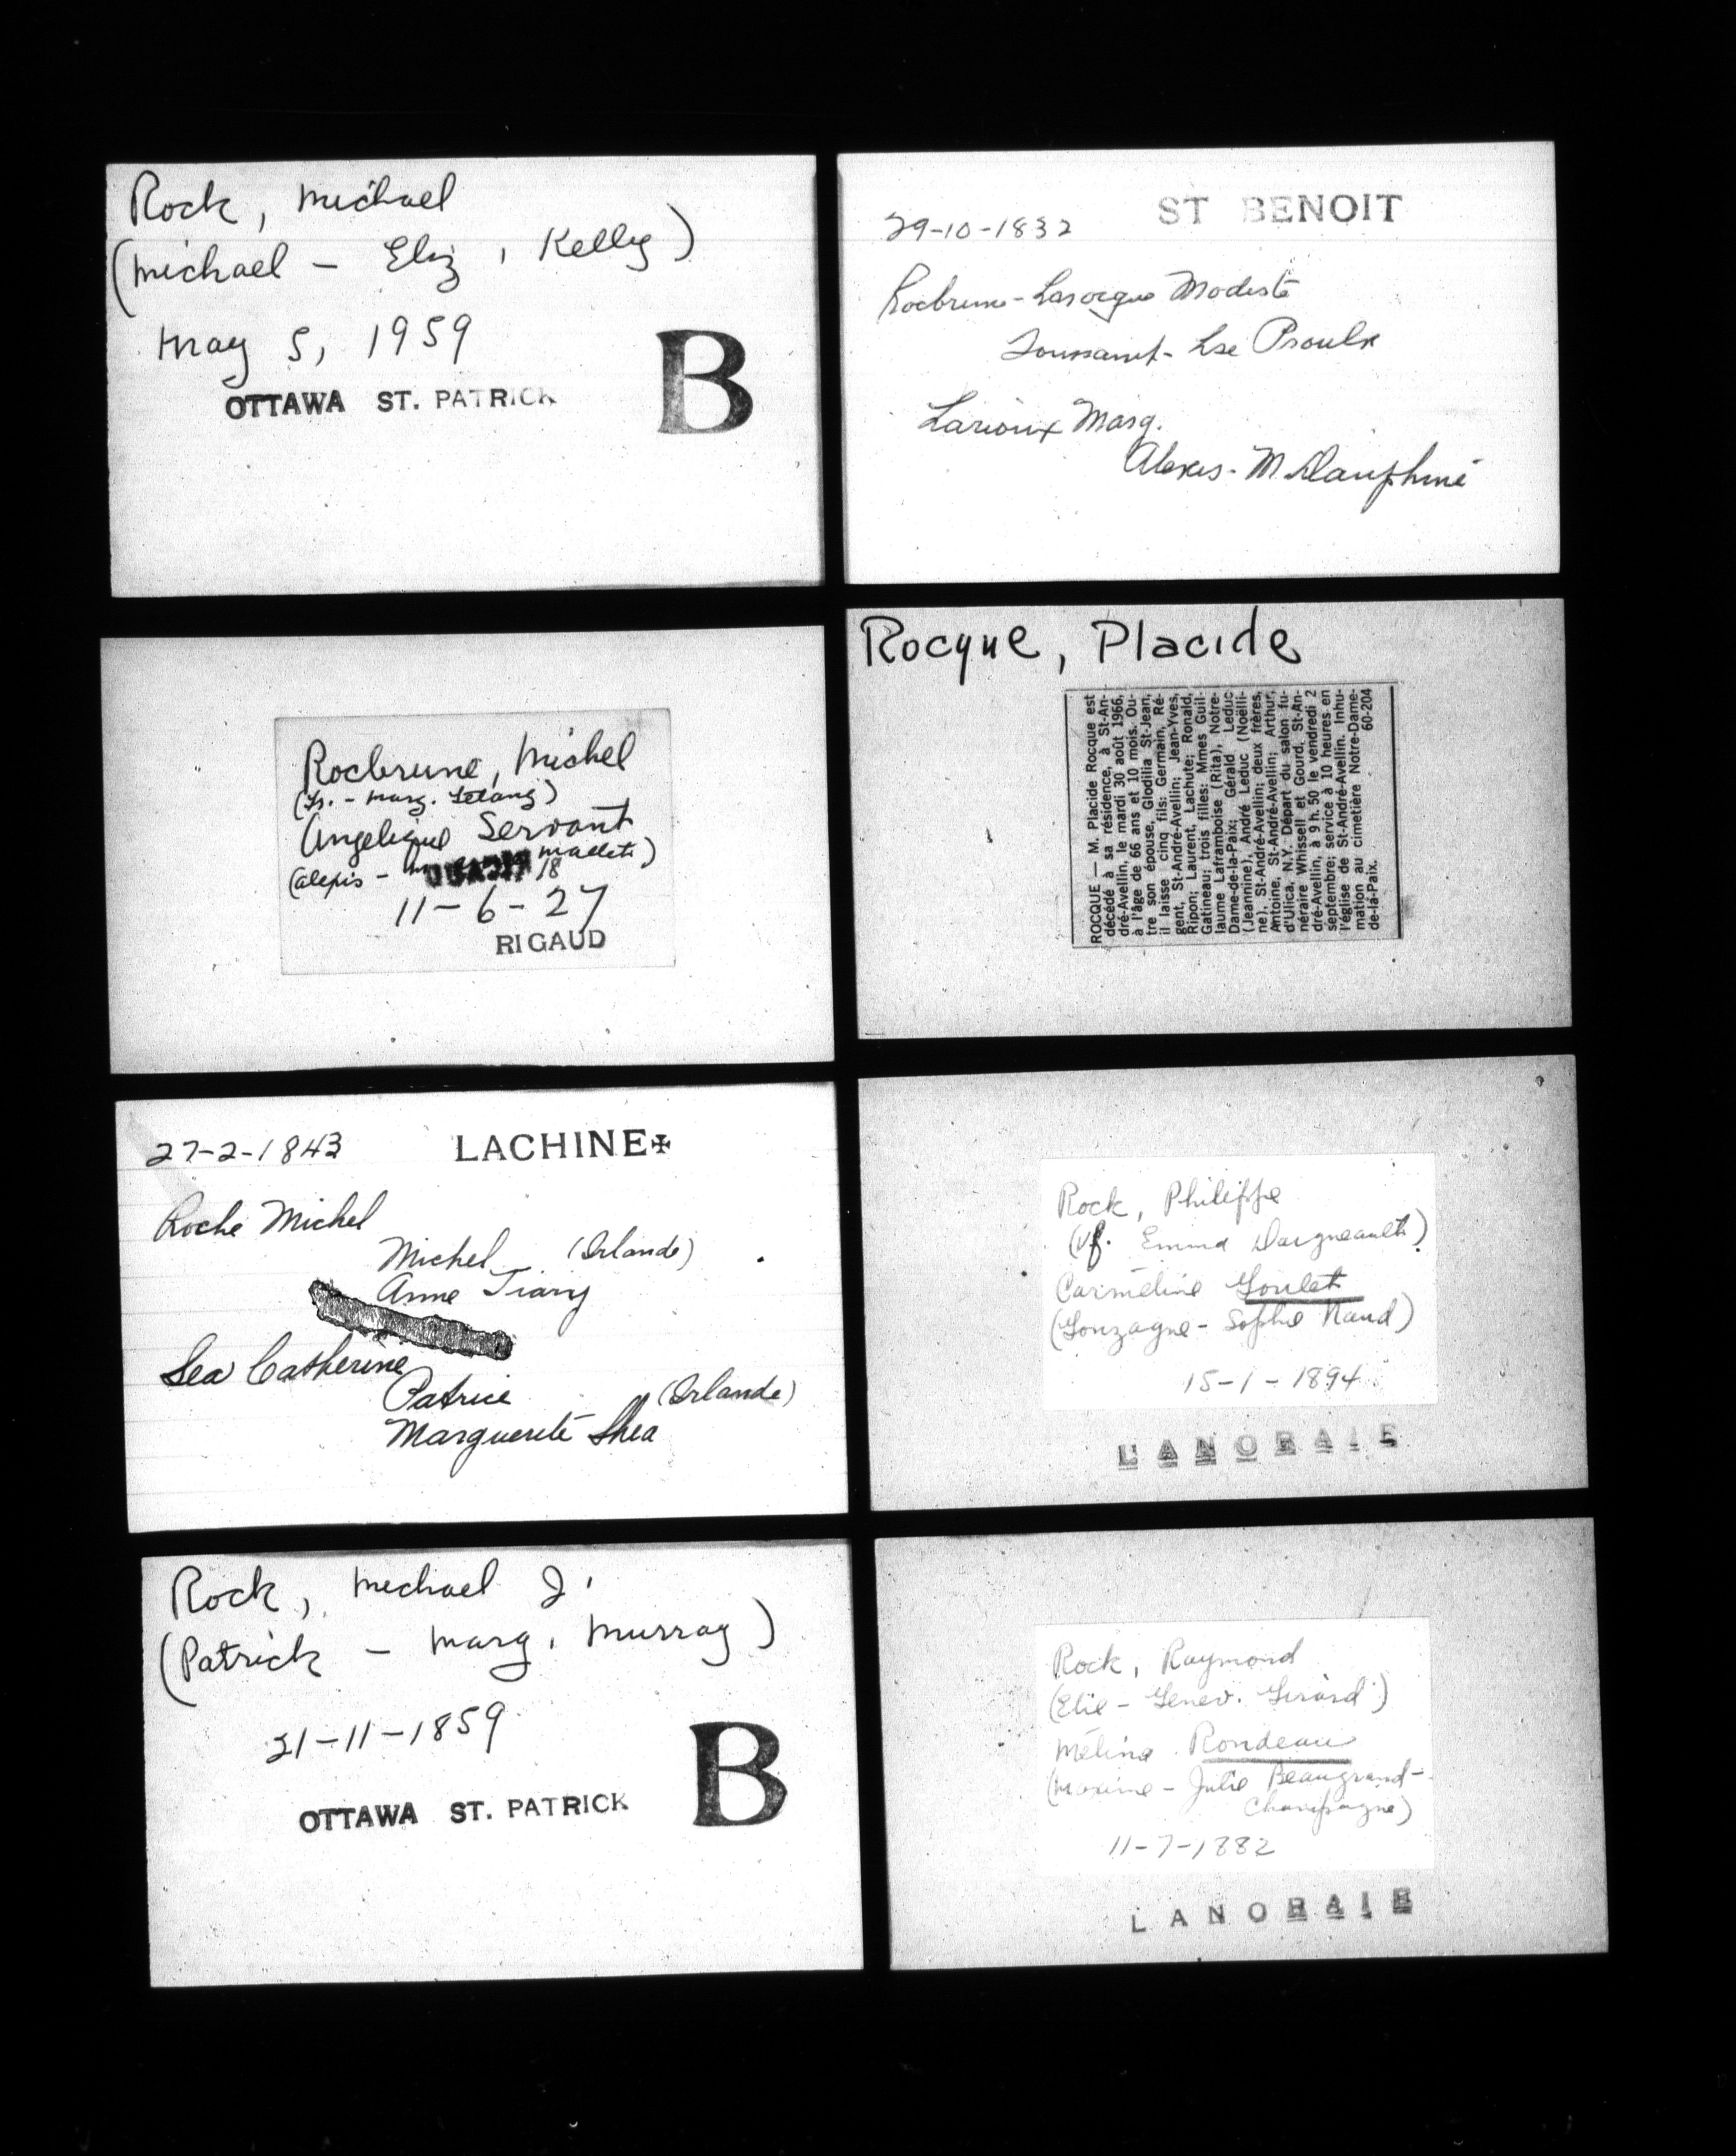 Rock, Michael
(Michael - Eliz. Kelly)
May 5, 1959
B
OTTAWA ST. PATRICK
Rocbrune, Michel
(Fr. - Marg. Letang)
Angelique Servant
(Alexis - mallette)
18
11-6-27
RIGAUD
27-2-1843 LACHINE✠
Roche Michel
Michel (Irlande)
Anne Tiary
Sea Catherine
Patrice (Irlande)
Marguerite Shea
Rock, Michael J.
(Patrick - Marg. Murray)
21-11-1859
B
OTTAWA ST. PATRICK
29-10-1832 ST BENOIT
Rocbrune-Larocque Modeste
Toussaint - Lse Proulx
Larioux Marg.
Alexis - M. Dauphiné
Rocque, Placide
ROCQUE — M. Placide Rocque est
décédé à sa résidence, à St-An-
dré-Avellin, le mardi 30 août 1966,
à l'âge de 66 ans et 10 mois. Ou-
tre son épouse, Glodilia St-Jean,
il laisse cinq fils: Germain, Ré-
gent, St-André-Avellin; Jean-Yves,
Ripon; Laurent, Lachute; Ronald,
Gatineau; trois filles: Mmes Guil-
laume Laframboise (Rita), Notre-
Dame-de-la-Paix; Gérald Leduc
(Jeannine), André Leduc (Noëlli-
ne), St-André-Avellin; deux frères,
Antoine, St-André-Avellin; Arthur,
d'Ulica, N.Y. Départ du salon fu-
néraire Whissell et Gourd, St-An-
dré-Avellin, à 9 h. 50 le vendredi 2
septembre; service à 10 heures en
l'église de St-André-Avellin. Inhu-
mation au cimetière Notre-Dame-
de-la-Paix. 60-204
Rock, Philippe
(Vf. Emma Daigneault)
Carméline Goulet
(Gonzague - Sophie Naud)
15-1-1894
LANORAIE
Rock, Raymond
(Elie - Genev. Girard)
Mélina Rondeau
(Maxime - Julie Beaugrand-
Champagne)
11-7-1882
LANORAIE